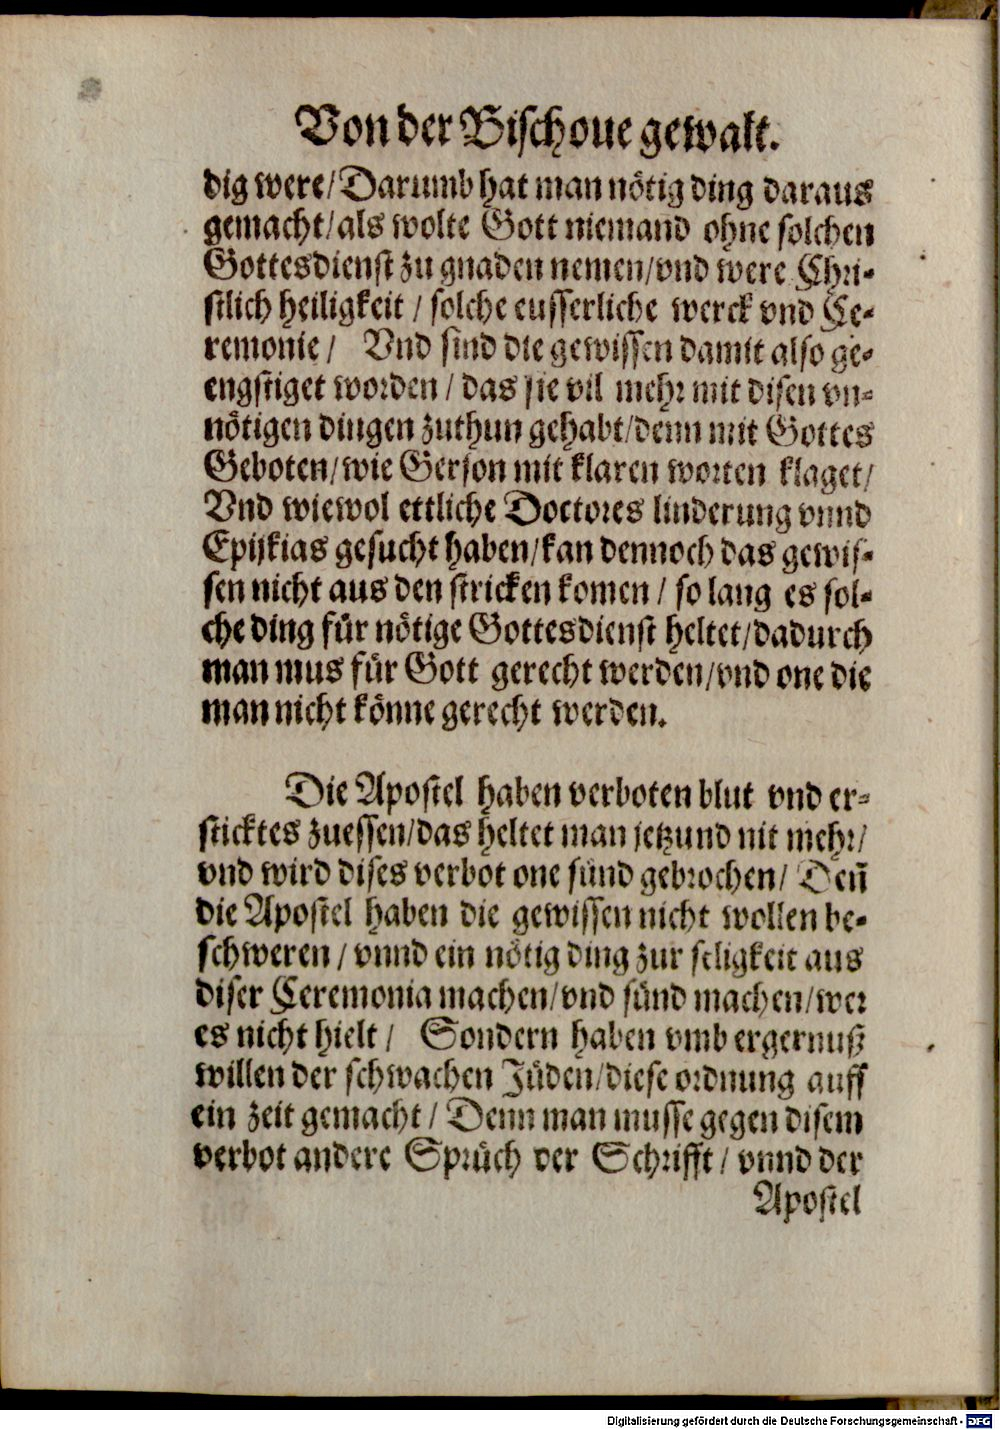 Von der Bischoue gewalt.
dig were/Darumb hat man nötig ding daraus
gemacht/als wolte Gott niemand ohne solchen
Gottesdienst zu gnaden nemen/vnd were Chri-
stlich heiligkeit / solche eusserliche werck vnd Ce-
remonie / Vnd sind die gewissen damit also ge-
engstiget worden / das sie vil mehr mit disen vn-
nötigen dingen zuthun gehabt/denn mit Gottes
Geboten/wie Gerson mit klaren worten klaget/
Vnd wiewol ettliche Doctores linderung vnnd
Epijkias gesucht haben/kan dennoch das gewis-
sen nicht aus den stricken komen / so lang es sol-
che ding für nötige Gottesdienst heltet/dadurch
man mus für Gott gerecht werden/vnd one die
man nicht könne gerecht werden.
Die Apostel haben verboten blut vnd er-
sticktes zuessen/das heltet man jetzund nit mehr/
vnd wird dises verbot one sünd gebrochen/ Deñ
die Apostel haben die gewissen nicht wollen be-
schweren / vnnd ein nötig ding zur seligkeit aus
diser Ceremonia machen/vnd sünd machen/wer
es nicht hielt / Sondern haben vmb ergernuß
willen der schwachen Jüden/diese ordnung auff
ein zeit gemacht / Denn man musse gegen disem
verbot andere Sprüch der Schrifft / vnnd der
Apostel
Digitalisierung gefördert durch die Deutsche Forschungsgemeinschaft - DFG